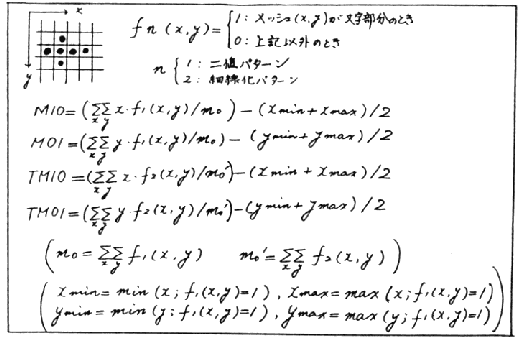 x
y
fn(x,y)={1:メッシュ(x,y)が文字部分のとき
0:上記以外のとき
n{1:二値パターン
2:細線化パターン
M10=(ΣΣ x・f1(x,y)/m0)-(xmin+xmax)/2
x y
M01=(ΣΣ y・f1(x,y)/m0)-(ymin+ymax)/2
x y
TM10=(ΣΣ x・f2(x,y)/m0')-(xmin+xmax)/2
x y
TM01=(ΣΣ y f2(x,y)/m0')-(ymin+ymax)/2
x y
(m0=ΣΣ f1(x,y) m0'=ΣΣ f2(x,y))
x y x y
(xmin=min(x;f1(x,y)=1), xmax=max(x;f1(x,y)=1)
ymin=min(y:f1(x,y)=1), ymax=max(y;f1(x,y)=1))